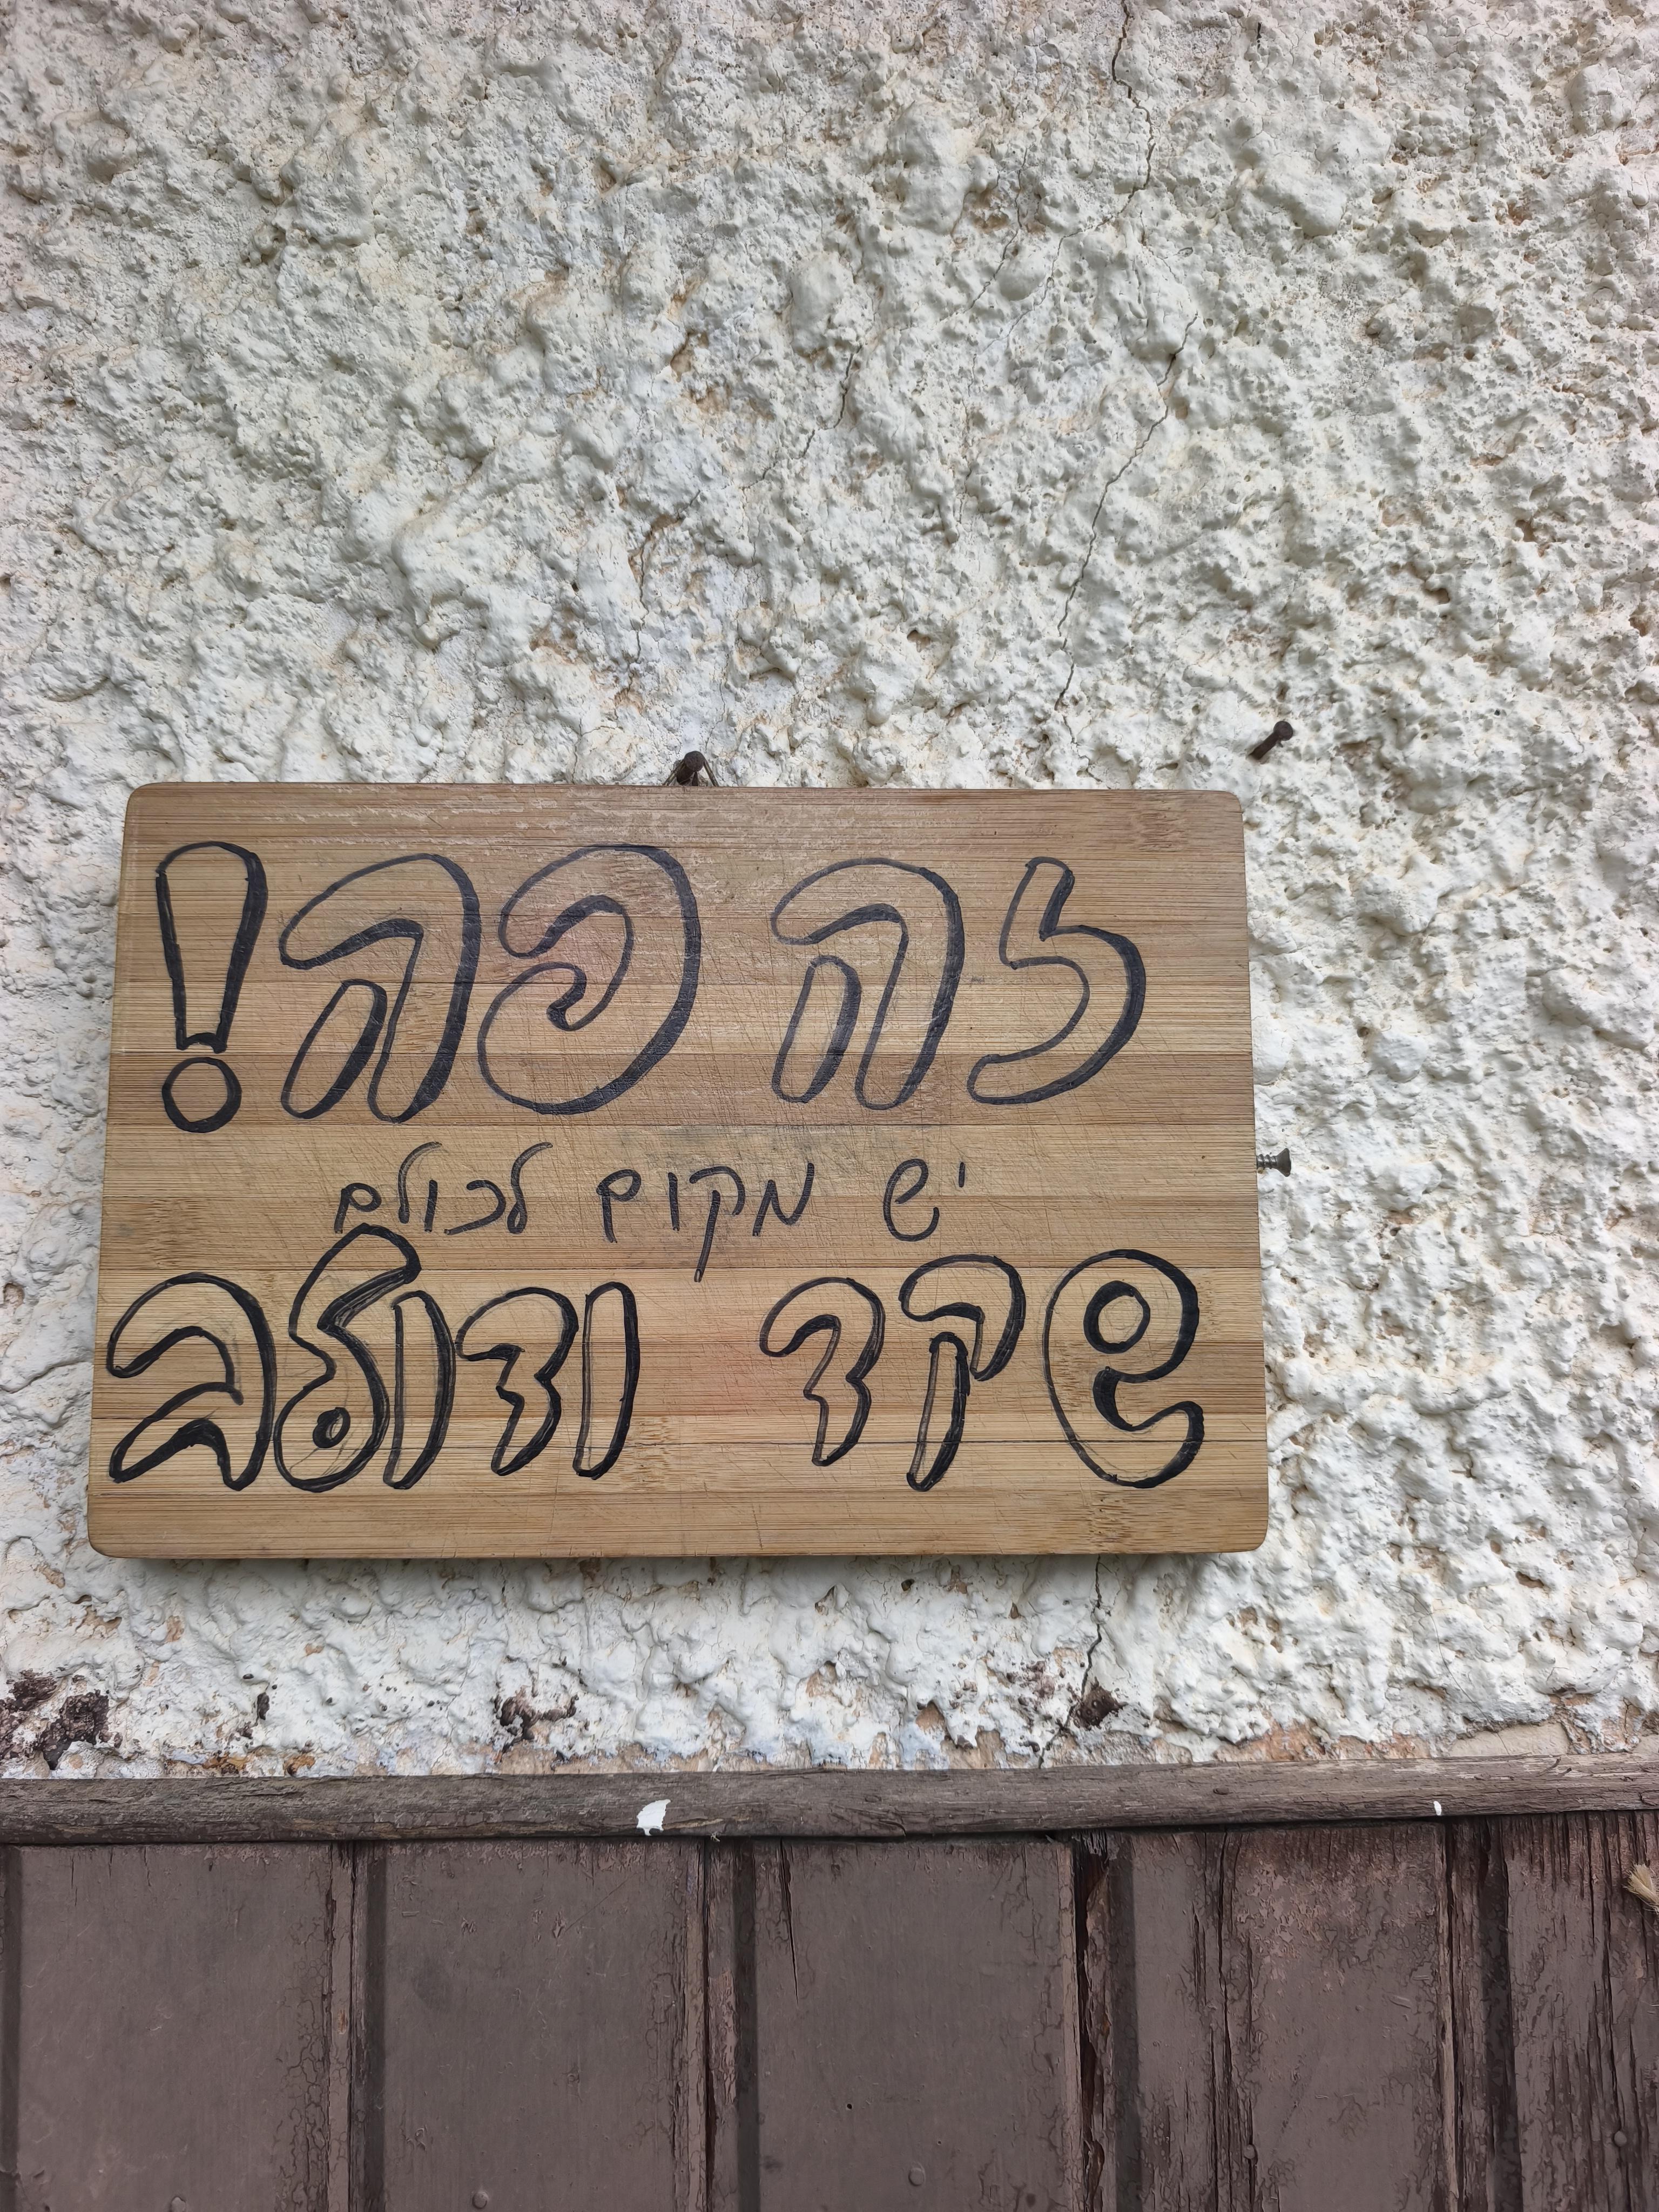 זה פה!
יש מקום לכולם
שקד ודולב